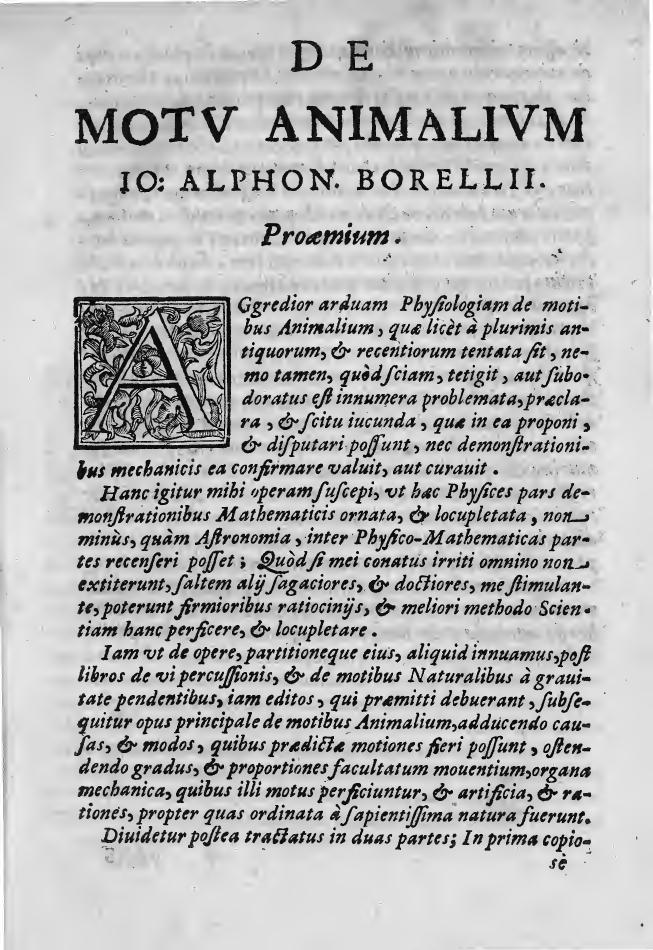 DE
MOTV ANIMALIVM
IO: ALPHON. BORELLII.
Proæmium.
AGgredior arduam Phyſiologiam de moti-
bus Animalium, quæ licèt à plurimis an-
tiquorum, & recentiorum tentata ſit, ne-
mo tamen, quòd ſciam, tetigit, aut ſubo-
doratus eſt innumera problemata, præcla-
ra, & ſcitu iucunda, quæ in ea proponi,
& diſputari poſſunt, nec demonſtrationi-
bus mechanicis ea confirmare valuit, aut curauit.
Hanc igitur mihi operam ſuſcepi, vt hæc Phyſices pars de-
monſtrationibus Mathematicis ornata, & locupletata, non
minùs, quàm Aſtronomia, inter Phyſico-Mathematicas par-
tes recenſeri poſſet; Quòd ſi mei conatus irriti omnino non
extiterunt, ſaltem alij ſagaciores, & doctiores, me ſtimulan-
te, poterunt firmioribus ratiocinijs, & meliori methodo Scien-
tiam hanc perficere, & locupletare.
Iam vt de opere, partitioneque eius, aliquid innuamus, poſt
libros de vi percuſſionis, & de motibus Naturalibus à graui-
tate pendentibus, iam editos, qui præmitti debuerant, ſubſe-
quitur opus principale de motibus Animalium, adducendo cau-
ſas, & modos, quibus prædictæ motiones fieri poſſunt, oſten-
dendo gradus, & proportiones facultatum mouentium, organa
mechanica, quibus illi motus perficiuntur, & artificia, & ra-
tiones, propter quas ordinata à ſapientiſſima natura fuerunt.
Diuidetur poſtea tractatus in duas partes; In prima copio-
sè